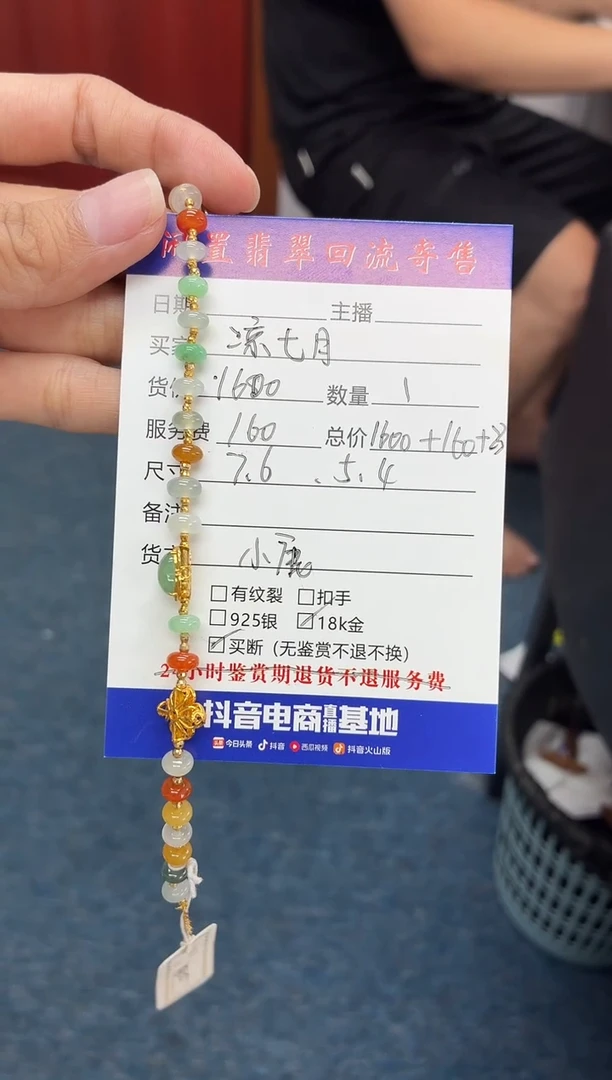 闲置翡翠回流寄售
日期 主播
买家 凉七月
货价 1600 数量 1
服务费 160 总价 1600+160+3
尺寸 7.6 .5.4
备注
货主 小鹿
□有纹裂 □扣手
□925银 ☑18k金
☑买断（无鉴赏不退不换）
24小时鉴赏期退货不退服务费
抖音电商直播基地
今日头条 抖音 西瓜视频 抖音火山版